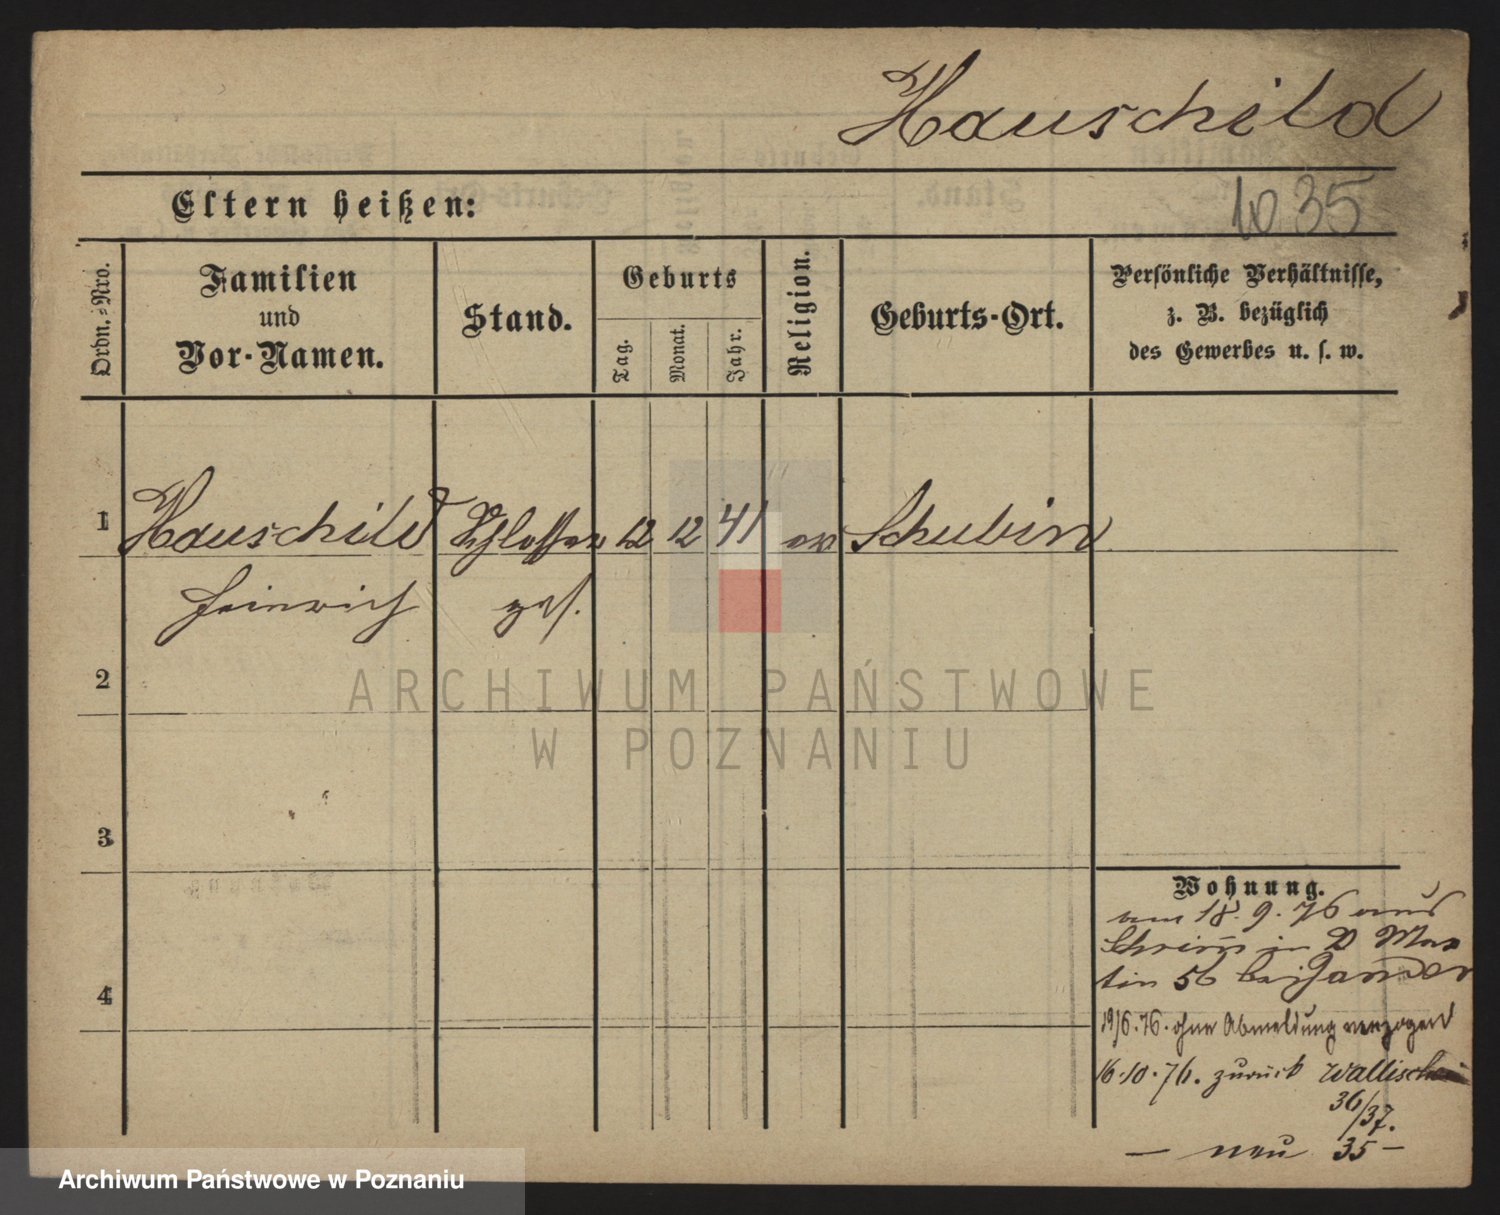 Hauschild
Eltern heißen:
1035
Ordn.-Nro.
Familien
und
Vor-Namen.
Stand.
Geburts
Tag.
Monat.
Jahr.
Religion.
Geburts-Ort.
Persönliche Verhältnisse,
z. B. bezüglich
des Gewerbes u. s. w.
1 Hauschild Schlosser 12 12 41 ev Schubin
Heinrich ges.
2
3
4
Wohnung.
am 18. 9. 76 aus
Schrimm in D Mar
tin 56 bei
19/6. 76. ohne Abmeldung verzogen
16. 10. 76. zurück Wallischei
36/37.
— neu 35 —
ARCHIWUM PAŃSTWOWE
W POZNANIU
Archiwum Państwowe w Poznaniu